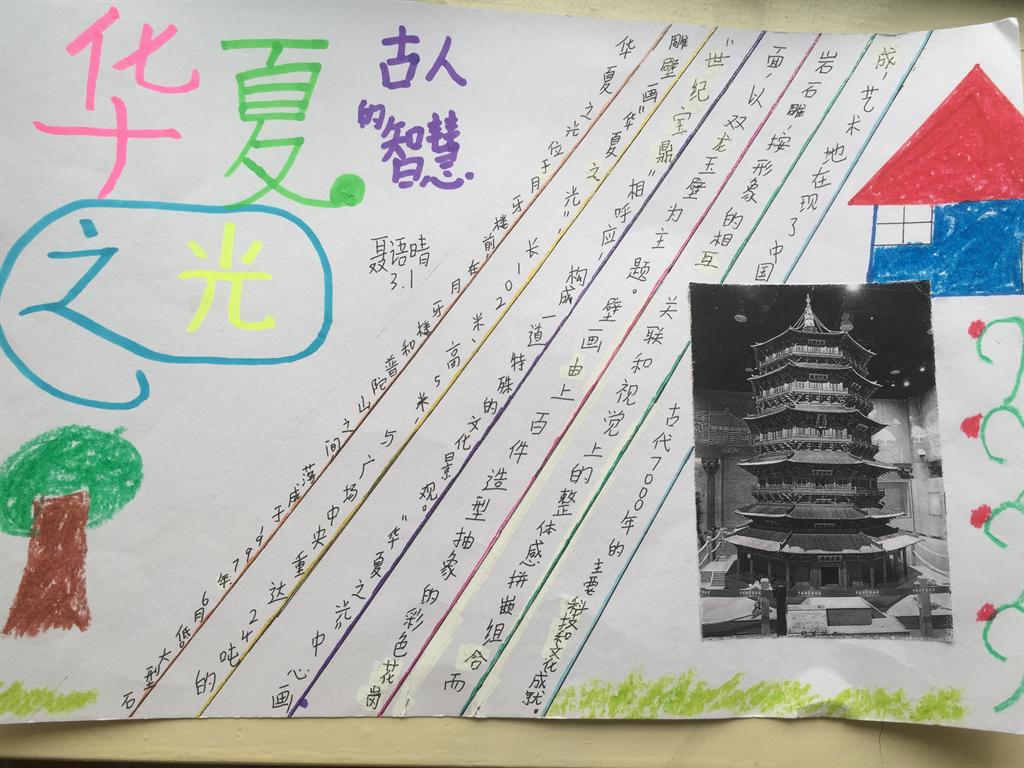 华夏
之光
古人
的智慧
聂语晴
3.1
华夏之光位于月牙楼前,在月牙楼和普陀山之间落成于1997年6月低大型石
雕壁画“华夏之光”长201米,高5米,与广场中央重达24吨的
“世纪宝鼎”相呼应,构成一道特殊的文化景观。“华夏之光”中心画
面,以双龙玉壁为主题。壁画由上百件造型抽象的彩色花岗
岩石雕,按形象的相互关联和视觉上的整体感拼嵌组合而
成,艺术地在现了中国古代7000年的主要科技和文化成就。